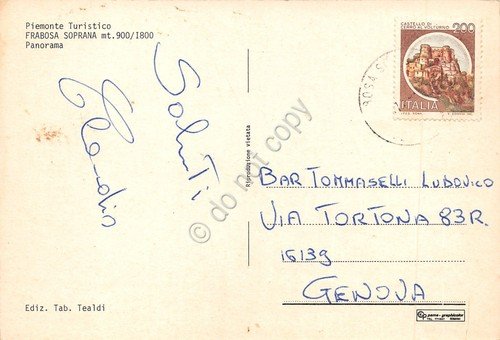 Piemonte Turistico
FRABOSA SOPRANA mt.900/1800
Panorama
Saluti
Claudio
Riproduzione vietata
CASTELLO DI
CERRO AL VOLTURNO
200
ITALIA
BAR TOMMASELLI LUDOVICO
VIA TORTONA 83R.
16139
GENOVA
Ediz. Tab. Tealdi
© do not copy